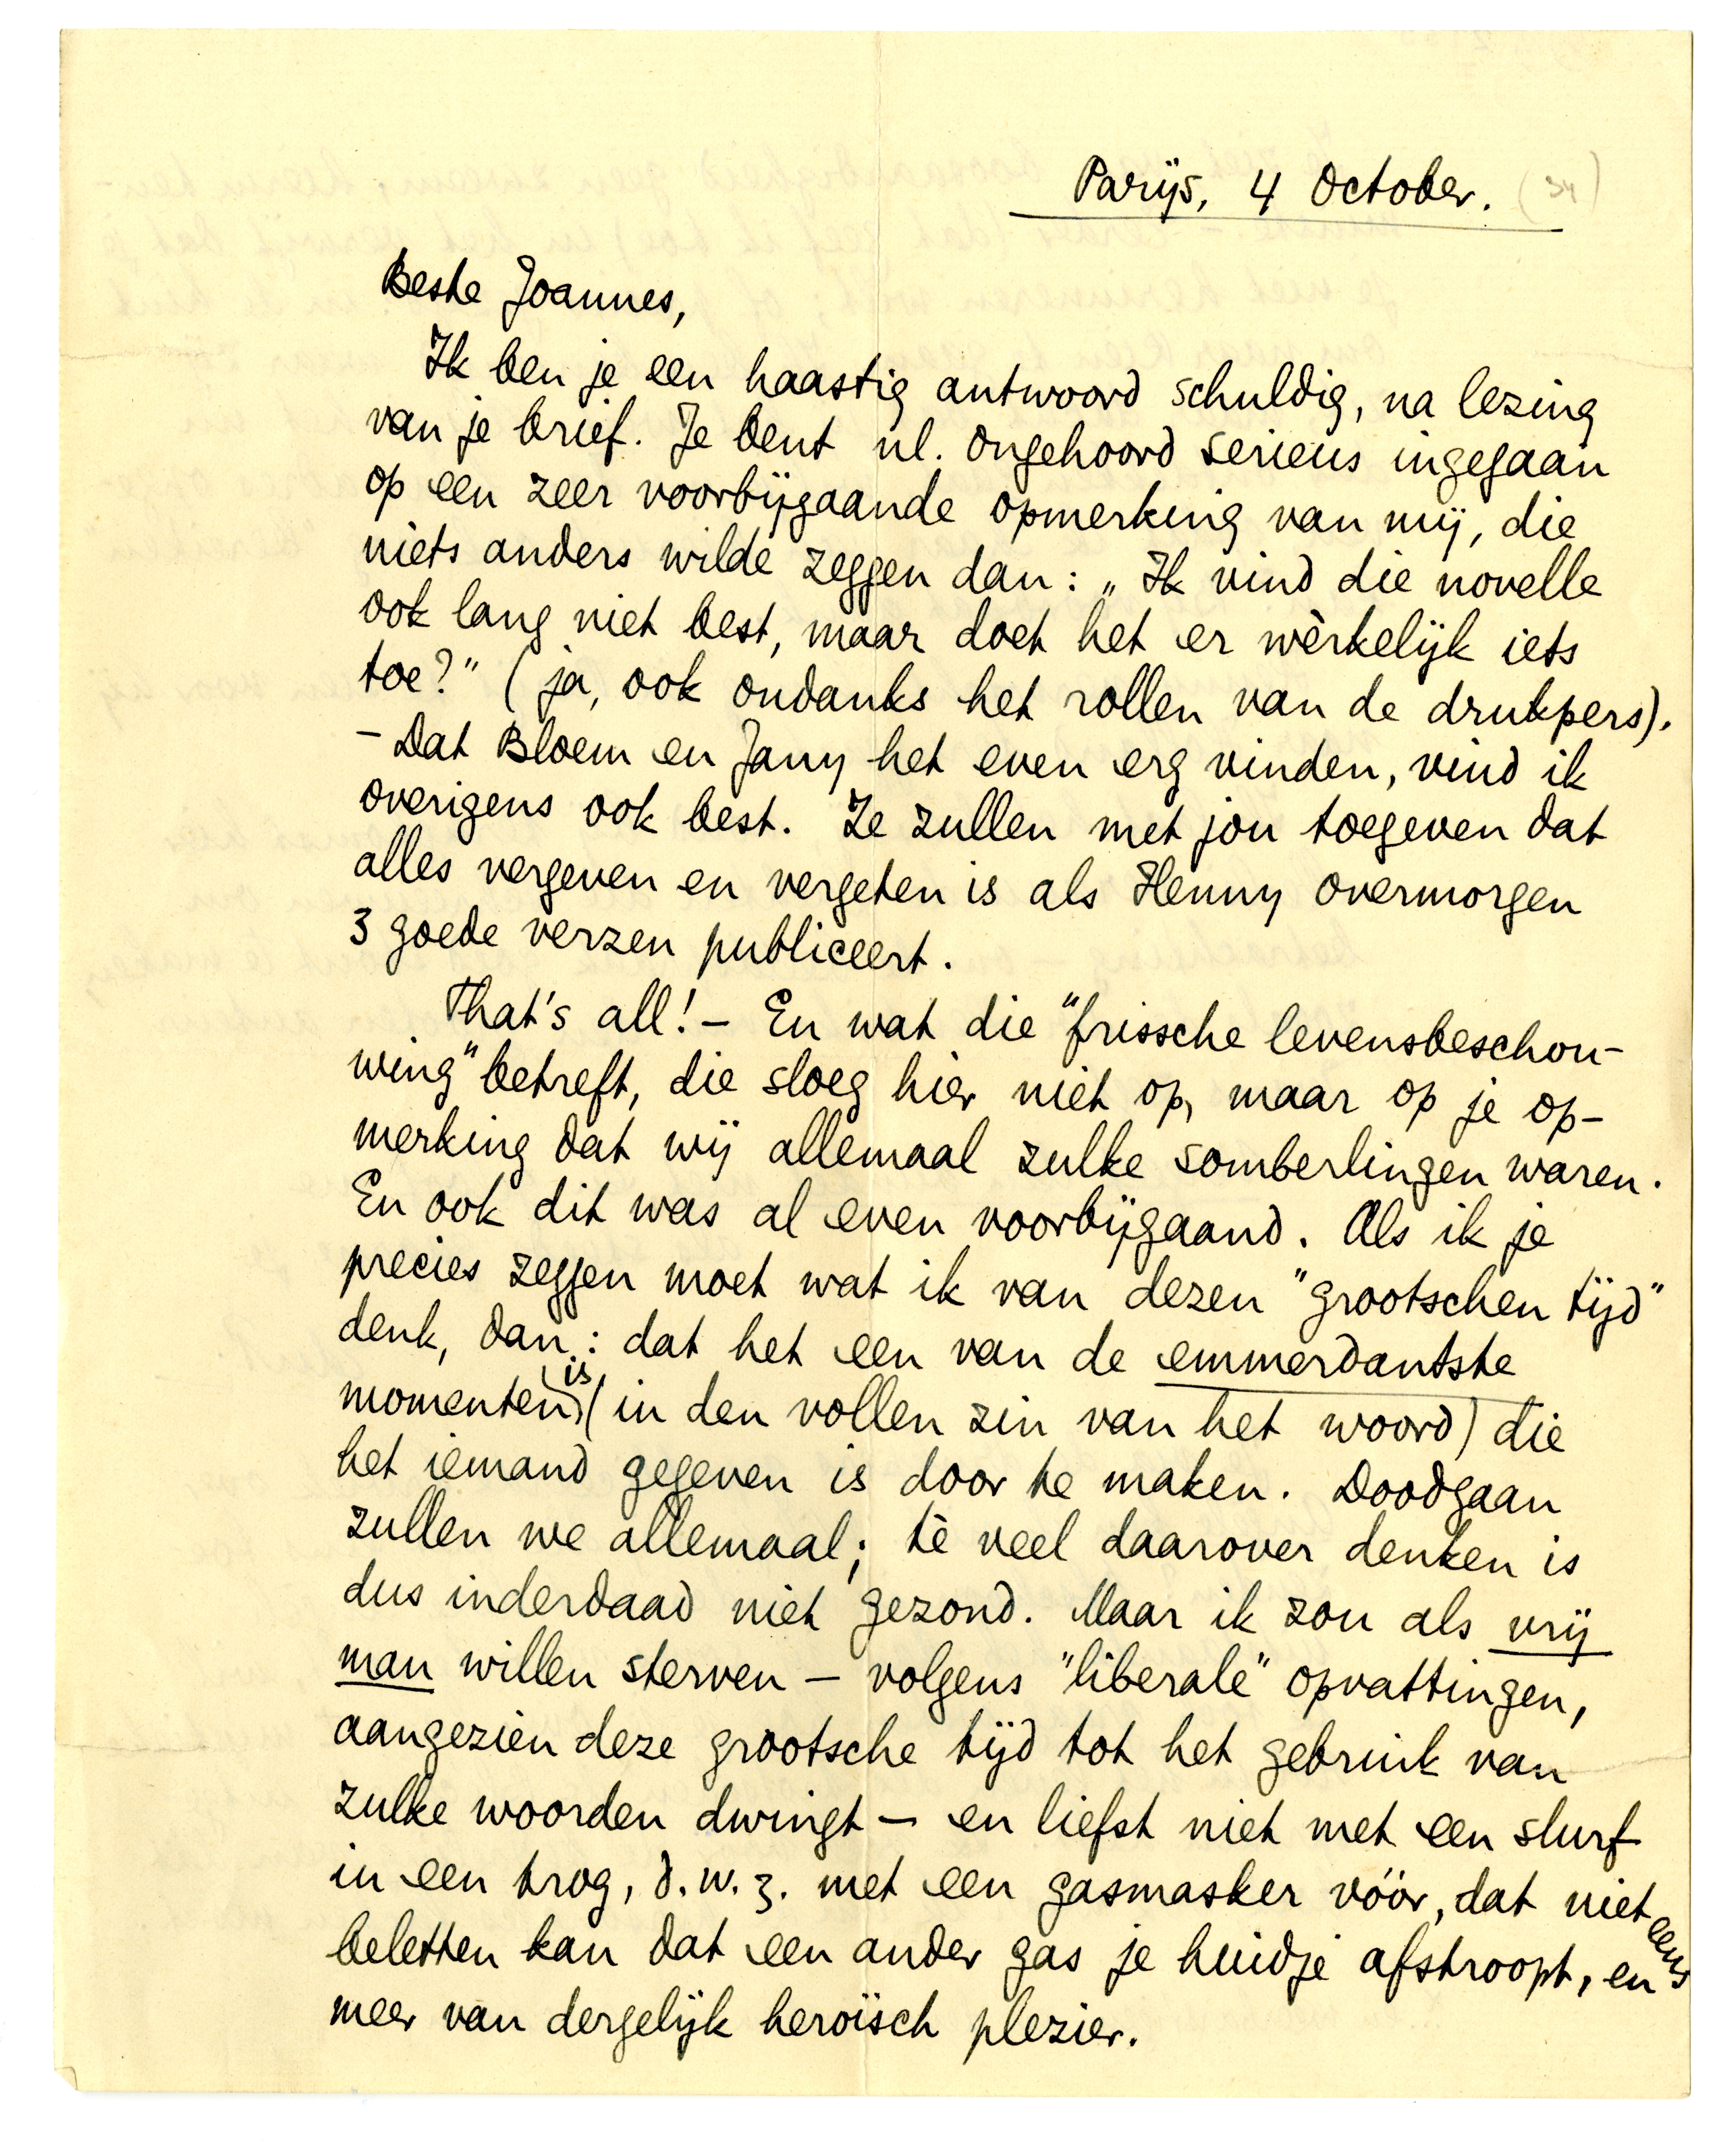 Parijs, 4 October. (34)
Beste Joannes,
Ik ben je een haastig antwoord schuldig, na lezing
van je brief. Je bent nl. ongehoord serieus ingegaan
op een zeer voorbijgaande opmerking van mij, die
niets anders wilde zeggen dan: „Ik vind die novelle
ook lang niet best, maar doet het er wèrkelijk iets
toe?" (ja, ook ondanks het rollen van de drukpers).
- Dat Bloem en Jany het even erg vinden, vind ik
overigens ook best. Ze zullen met jou toegeven dat
alles vergeven en vergeten is als Henny overmorgen
3 goede verzen publiceert.
That's all! - En wat die "frissche levensbeschou-
wing" betreft, die sloeg hier niet op, maar op je op-
merking dat wij allemaal zulke somberlingen waren.
En ook dit was al even voorbijgaand. Als ik je
precies zeggen moet wat ik van dezen "grootschen tijd"
denk, dan: dat het een van de emmerdantste
momenten is (in den vollen zin van het woord) die
het iemand gegeven is door te maken. Doodgaan
zullen we allemaal; tè veel daarover denken is
dus inderdaad niet gezond. Maar ik zou als vrij
man willen sterven - volgens "liberale" opvattingen,
aangezien deze grootsche tijd tot het gebruik van
zulke woorden dwingt - en liefst niet met een slurf
in een trog, d.w.z. met een gasmasker vóór, dat niet eens
beletten kan dat een ander gas je huidje afstroopt, en
meer van dergelijk heroïsch plezier.